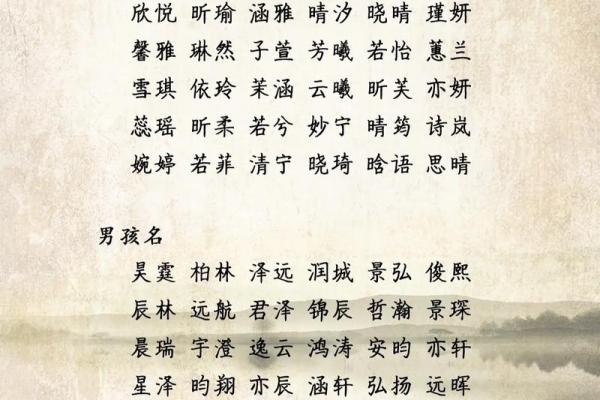 欣悦 昕瑜 涵雅 晴汐 晓晴 瑾妍
馨雅 琳然 子萱 芳曦 若怡 蕙兰
雪琪 依玲 茉涵 云曦 昕芙 亦妍
蕊瑶 昕柔 若兮 妙宁 晴筠 诗岚
婉婷 若菲 清宁 晓琦 晗语 思晴
男孩名
昊霆 柏林 泽远 润城 景弘 俊熙
辰林 远航 君泽 锦辰 哲瀚 景琛
晨瑞 宇澄 逸云 鸿涛 安昀 亦轩
星泽 昀翔 亦辰 涵轩 弘扬 远晖